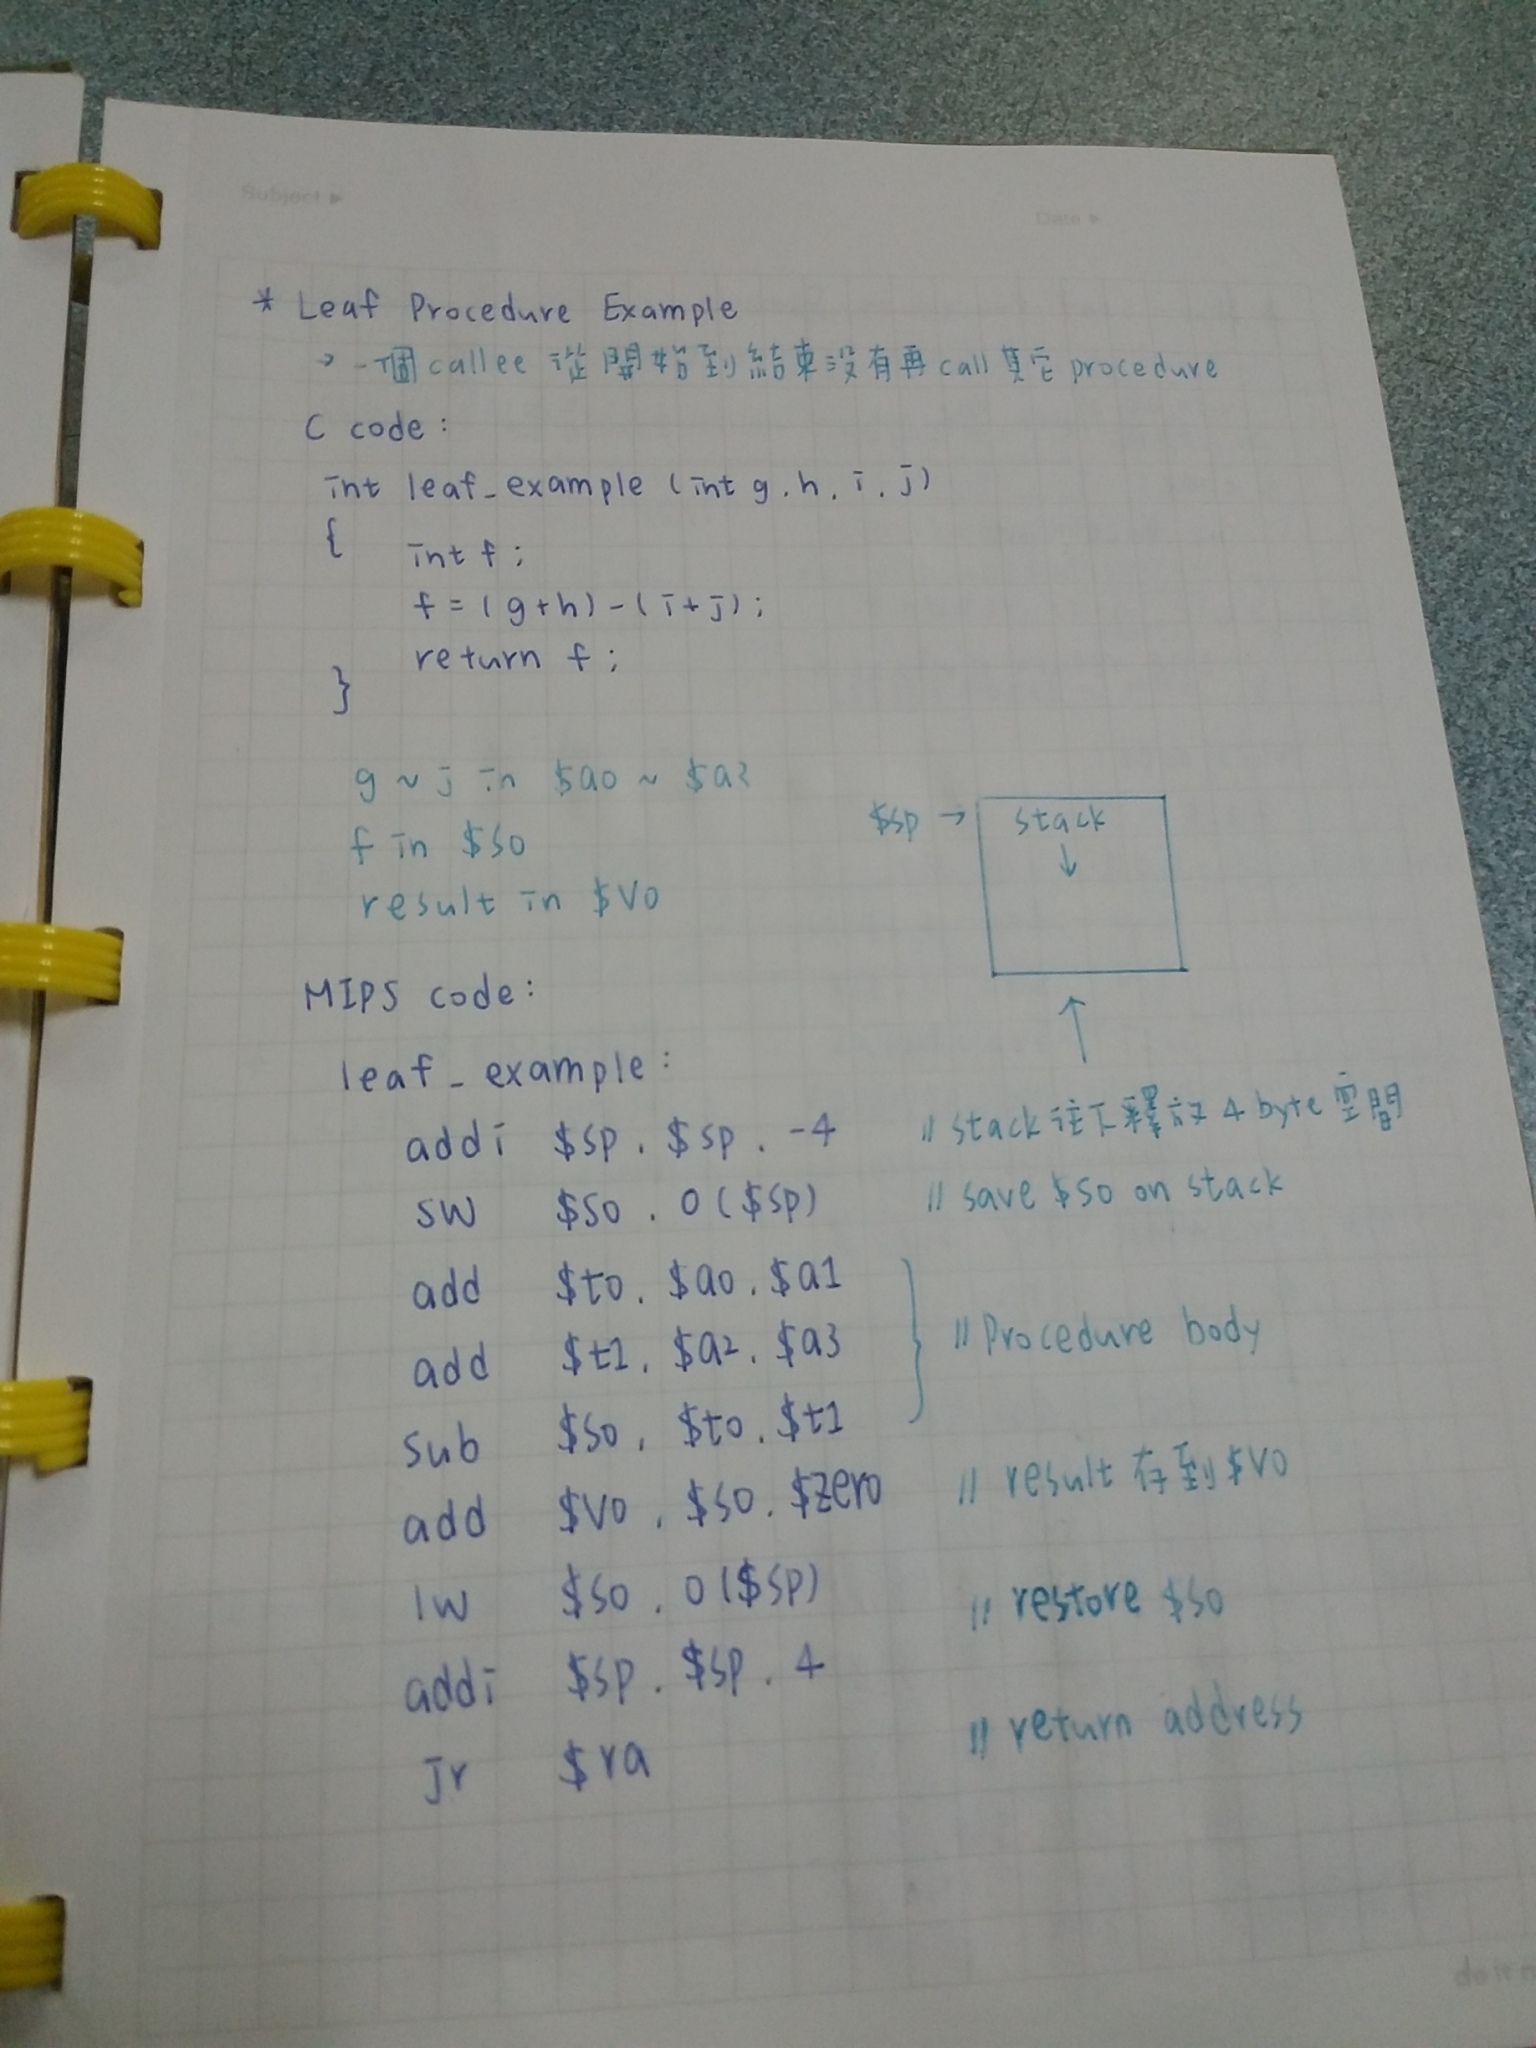 Subject ▶
Date ▶
* Leaf Procedure Example
→ 一個 callee 從開始到結束沒有再 call 其它 procedure
C code :
int leaf_example (int g, h, i, j)
{
int f ;
f = (g+h) - (i+j) ;
return f ;
}
g ~ j in $a0 ~ $a3
f in $s0
result in $v0
$sp → stack
↓
↑
MIPS code :
leaf_example :
addi $sp, $sp, -4 // stack 往下釋放 4 byte 空間
sw $s0, 0($sp) // save $s0 on stack
add $t0, $a0, $a1
add $t1, $a2, $a3 // Procedure body
sub $s0, $t0, $t1
add $v0, $s0, $zero // result 存到 $v0
lw $s0, 0($sp) // restore $s0
addi $sp, $sp, 4
jr $ra // return address